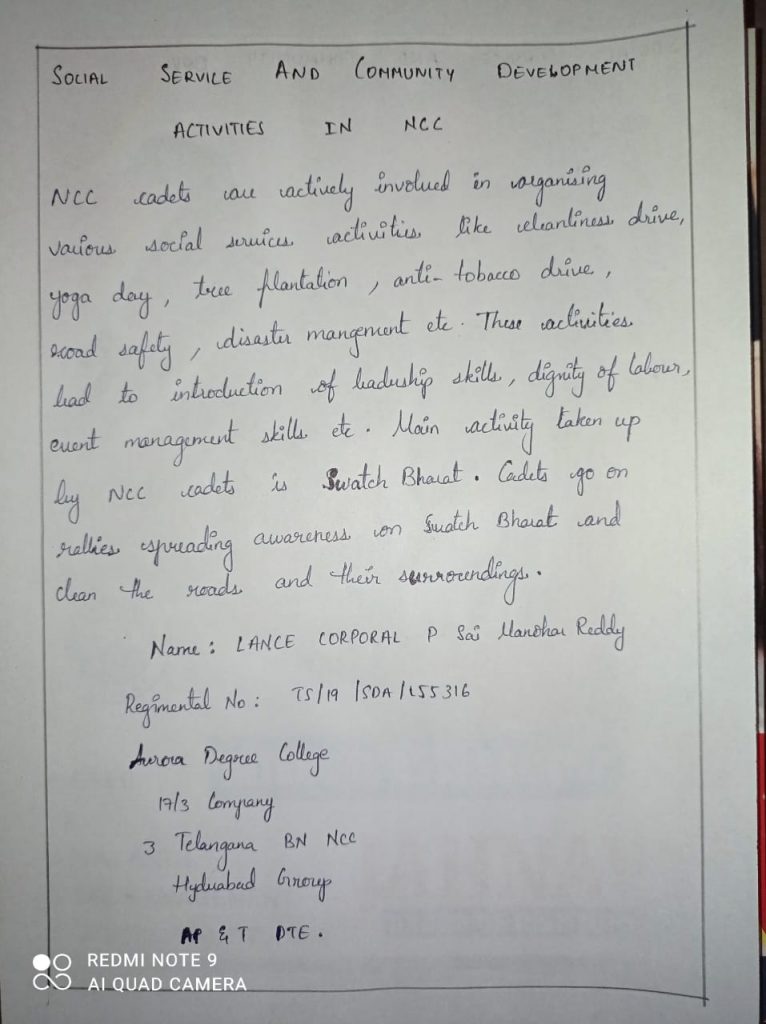 SOCIAL SERVICE AND COMMUNITY DEVELOPMENT
ACTIVITIES IN NCC
NCC cadets are actively involved in organising
various social services activities like cleanliness drive,
yoga day, tree plantation, anti-tobacco drive,
road safety, disaster mangement etc. These activities
lead to introduction of leadership skills, dignity of labour,
event management skills etc. Main activity taken up
by NCC cadets is Swatch Bharat. Cadets go on
rallies spreading awareness on Swatch Bharat and
clean the roads and their surroundings.
Name: LANCE CORPORAL P Sai Manohar Reddy
Regimental No: TS/19/SDA/155316
Aurora Degree College
17/3 Company
3 Telangana BN NCC
Hyderabad Group
AP & T DTE.
REDMI NOTE 9
AI QUAD CAMERA